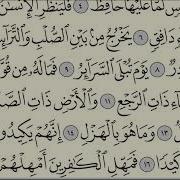 سٍ لَّمَّا عَلَيْهَا حَافِظٌ ٤ فَلْيَنظُرِ ٱلْإِن
ءٍ دَافِقٍ ٦ يَخْرُجُ مِنۢ بَيْنِ ٱلصُّلْبِ وَٱلتَّرَآئِ
دِرٌ ٨ يَوْمَ تُبْلَى ٱلسَّرَآئِرُ ٩ فَمَا لَهُۥ مِن قُوَّ
ءِ ذَاتِ ٱلرَّجْعِ ١١ وَٱلْأَرْضِ ذَاتِ ٱلصَّ
١٣ وَمَا هُوَ بِٱلْهَزْلِ ١٤ إِنَّهُمْ يَكِيدُو
كَيْدًا ١٦ فَمَهِّلِ ٱلْكَٰفِرِينَ أَمْهِلْهُمْ